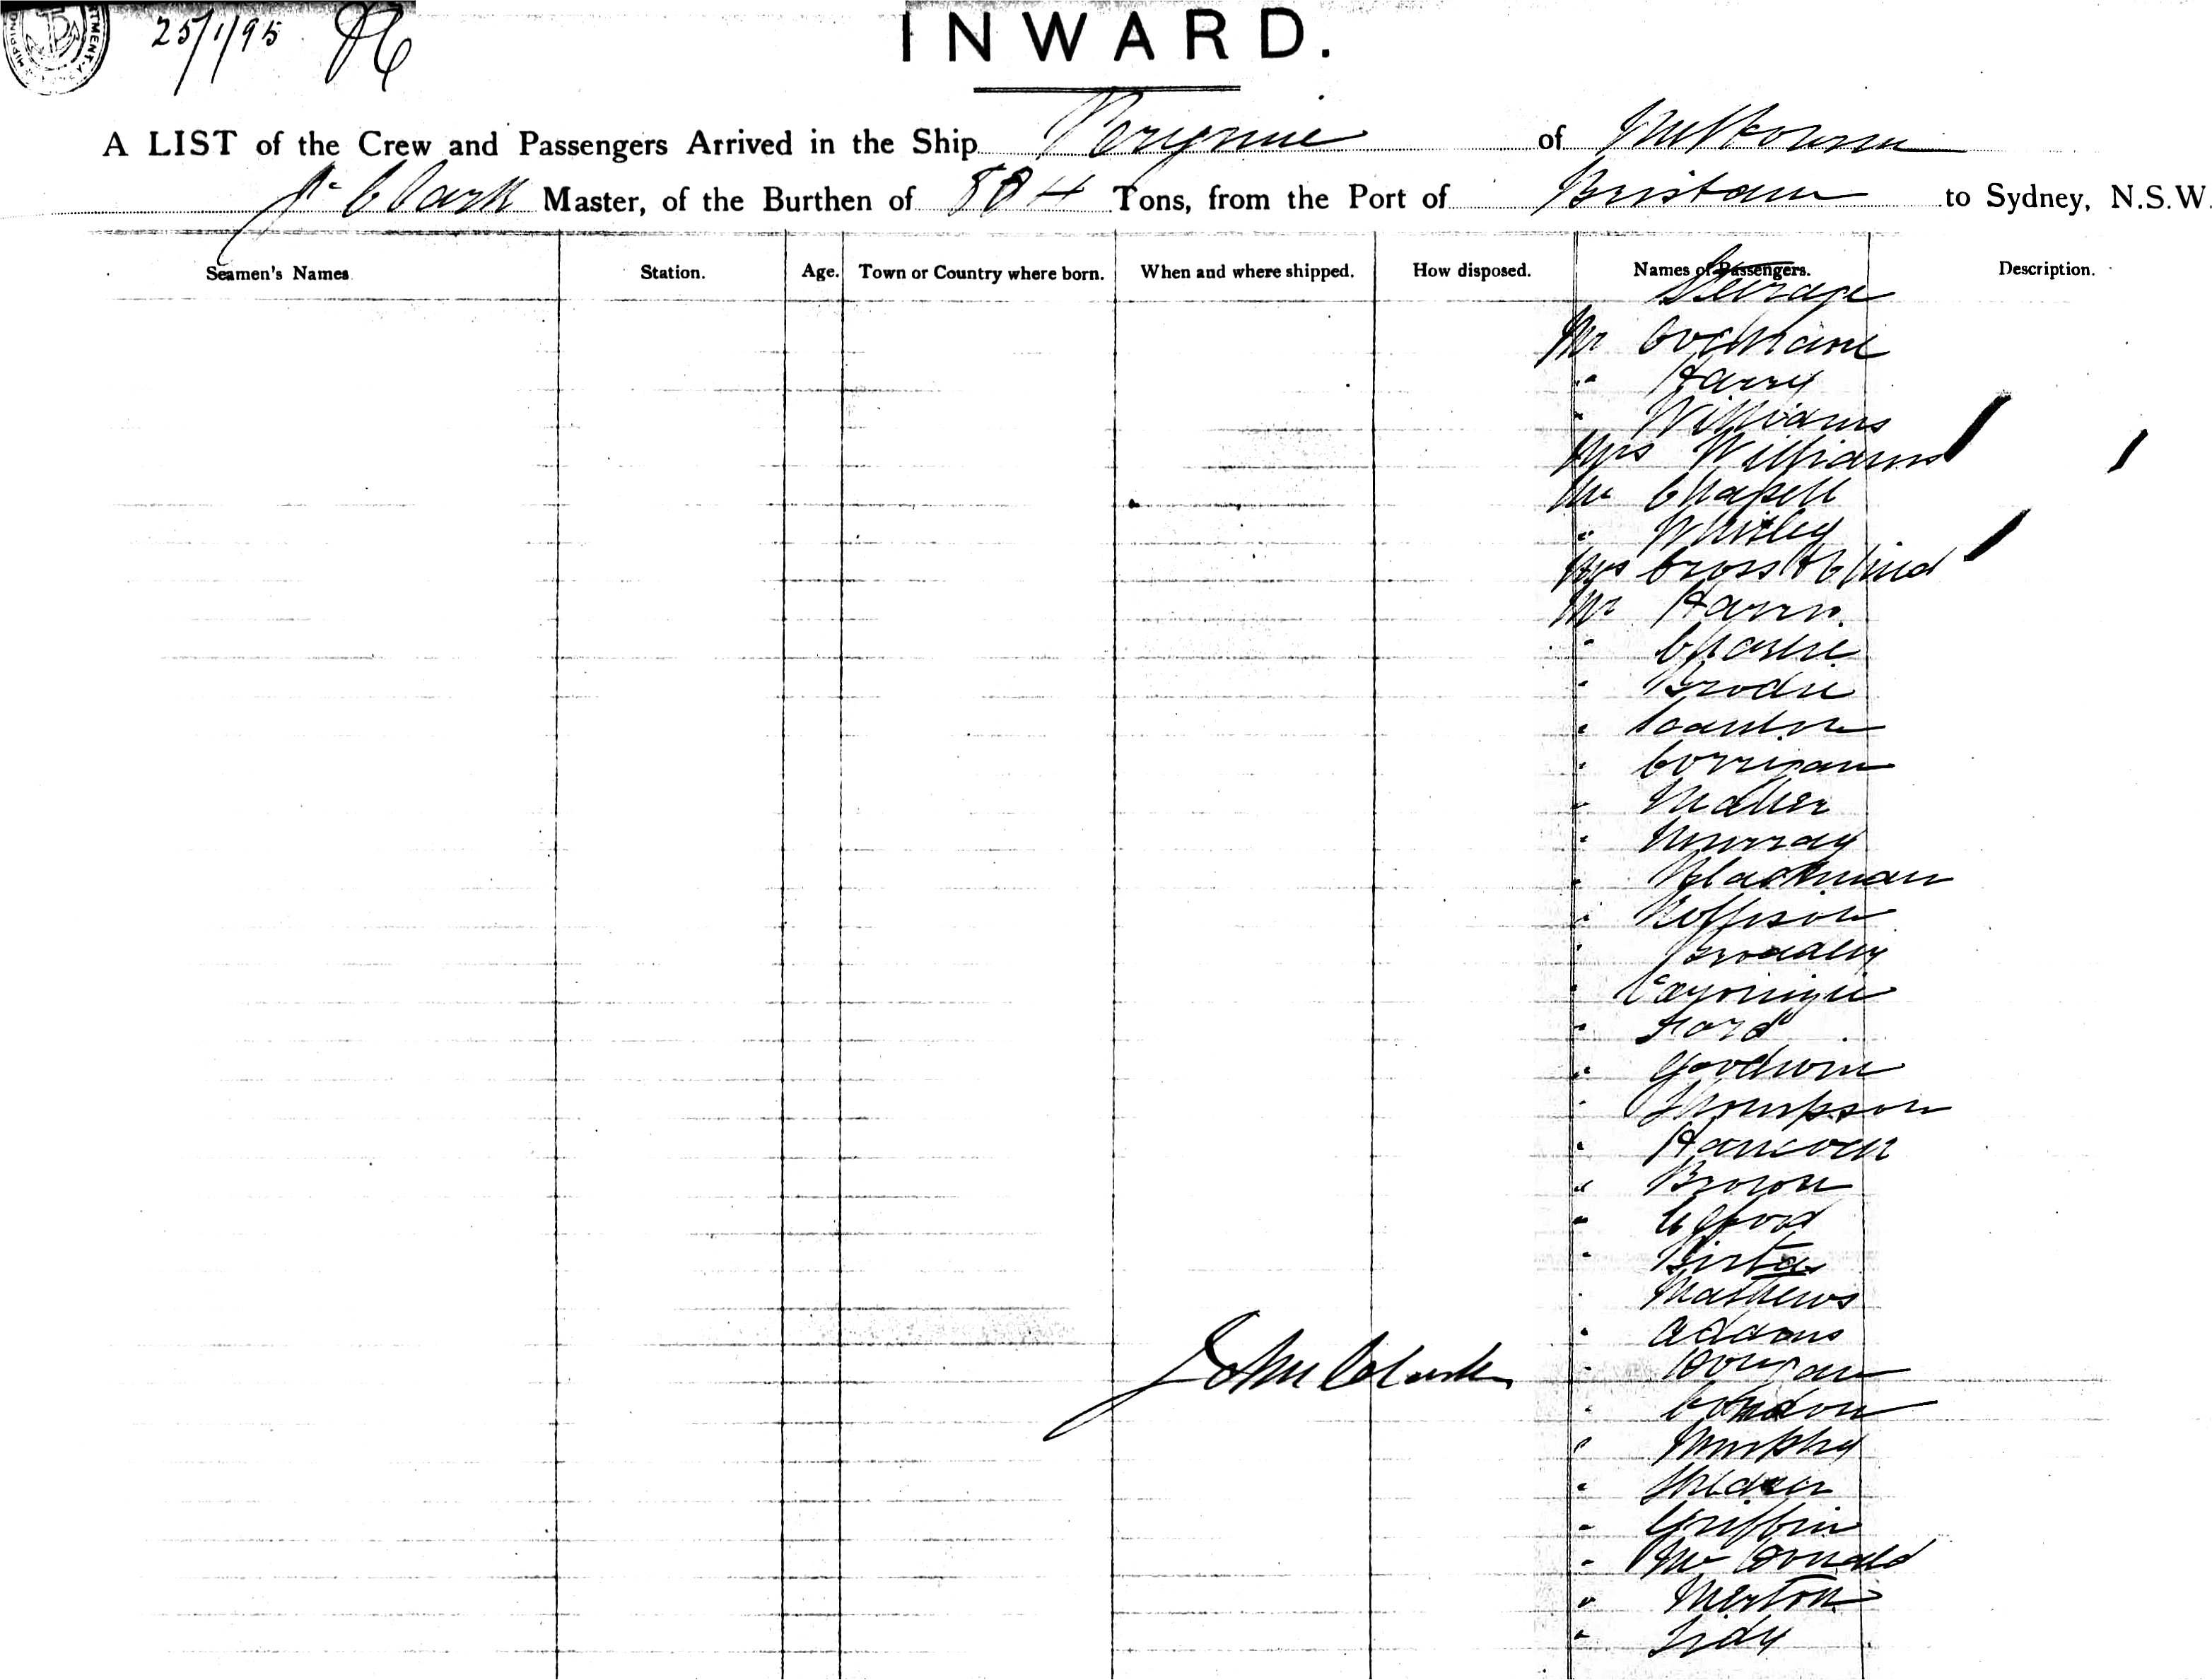 25/1/95
INWARD.
A LIST of the Crew and Passengers Arrived in the Ship Peregrine of Melbourne
J. Clark Master, of the Burthen of 884 Tons, from the Port of Brisbane to Sydney, N.S.W.
Seamen's Names Station. Age. Town or Country where born. When and where shipped. How disposed. Names of Passengers. Description.
Steerage
Mr Cochrane
" Harry
" Williams
Mrs Williams
Mr Chapell
" Whitley
Mrs Cross & Child
Mr Harris
" Charlie
" Brodie
" Scanlon
" Corrigan
" Maher
" Murray
" Blackman
" Neffison
" Broadley
" Carnigie
" Ford
" Goodwin
" Thompson
" Hancock
" Brown
" Efford
" Birt
Mathews
" Addams
" Dougan
" Condon
" Murphy
"
" Griffin
" McDonald
" Merton
" Tidy
John Clark